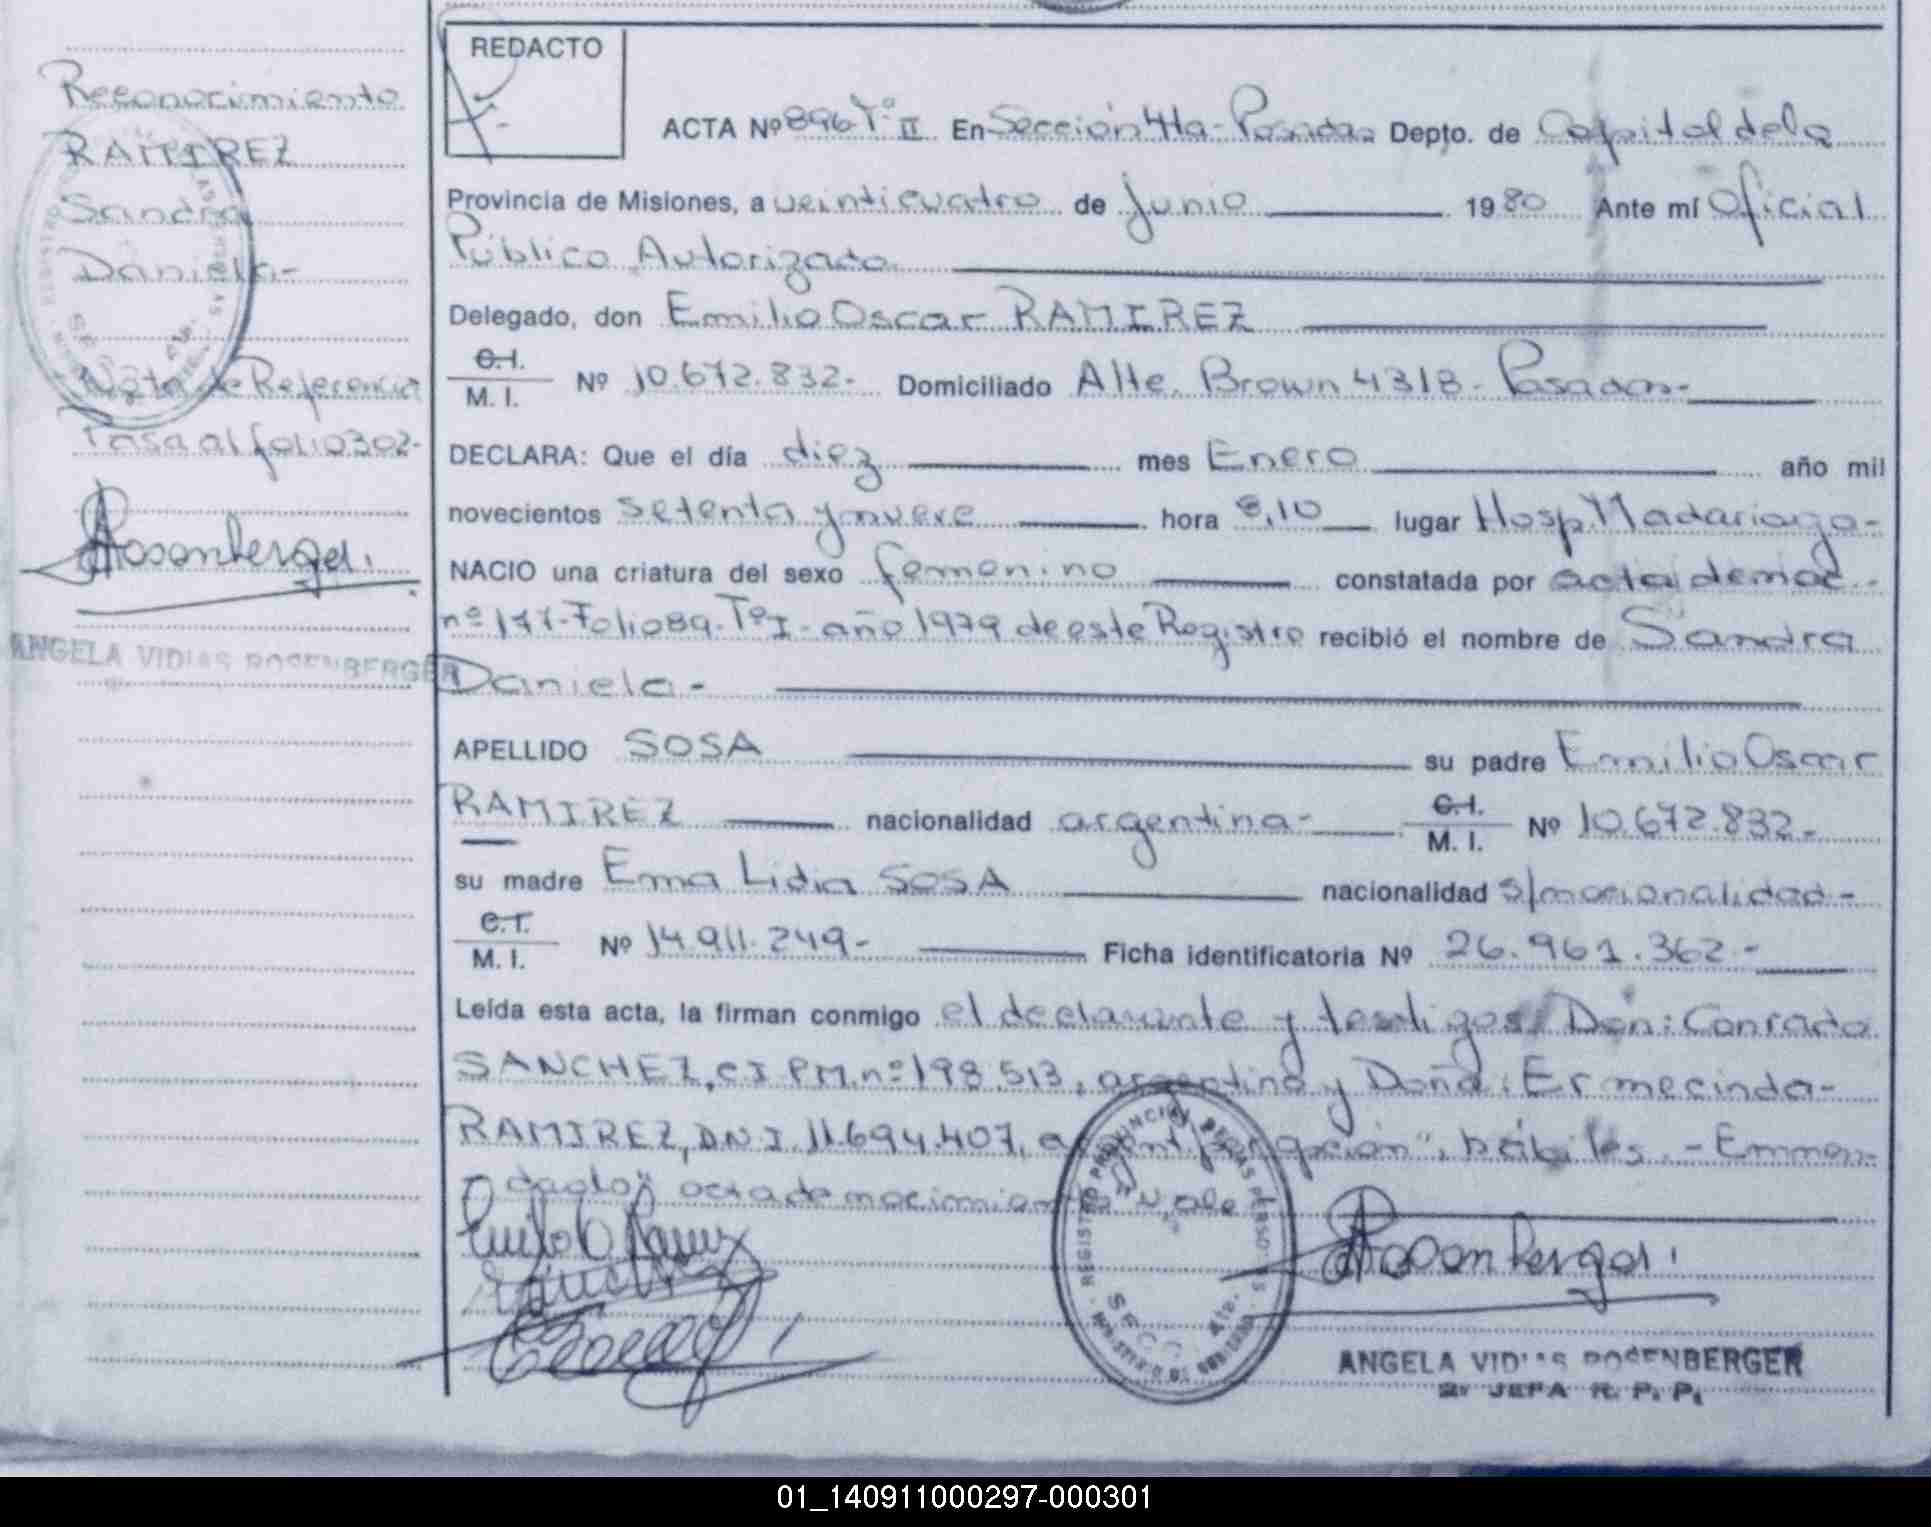 Reconocimiento
RAMIREZ
Sandra
Daniela-
Nota de Referencia
Pasa al folio 302-
Rosenberger.
ANGELA VIDIAS ROSENBERGER
REDACTO
ACTA Nº 896 Tº II En Sección 4ta- Posadas Depto. de Capital de la
Provincia de Misiones, a veinticuatro de Junio 1980 Ante mí Oficial
Público Autorizado
Delegado, don Emilio Oscar RAMIREZ
C.I.
M. I. Nº 10.672.832- Domiciliado Alte. Brown 4318- Posadas-
DECLARA: Que el día diez mes Enero año mil
novecientos setenta y nueve hora 8,10 lugar Hosp. Madariaga-
NACIO una criatura del sexo femenino constatada por acta de nac.
nº 177- Folio 89- Tº I- año 1979 de este Registro recibió el nombre de Sandra
Daniela-
APELLIDO SOSA su padre Emilio Oscar
RAMIREZ nacionalidad argentina- C.I. M. I. Nº 10.672.832-
su madre Ema Lidia SOSA nacionalidad s/nacionalidad-
C.I.
M. I. Nº 14.911.249- Ficha identificatoria Nº 26.961.362-
Leída esta acta, la firman conmigo el declarante y testigos Don: Conrado
SANCHEZ, CI PM. nº 198.513, argentino y Doña: Ermecinda-
RAMIREZ, D.N.I. 11.694.407, hábiles.- Enmen-
dado" acta de nacimiento" Vale
REGISTRO PROVINCIAL DE LAS PERSONAS
SECC 4ta.
Rosenberger.
ANGELA VIDIAS ROSENBERGER
2ª JEFA R. P. P.
01_140911000297-000301